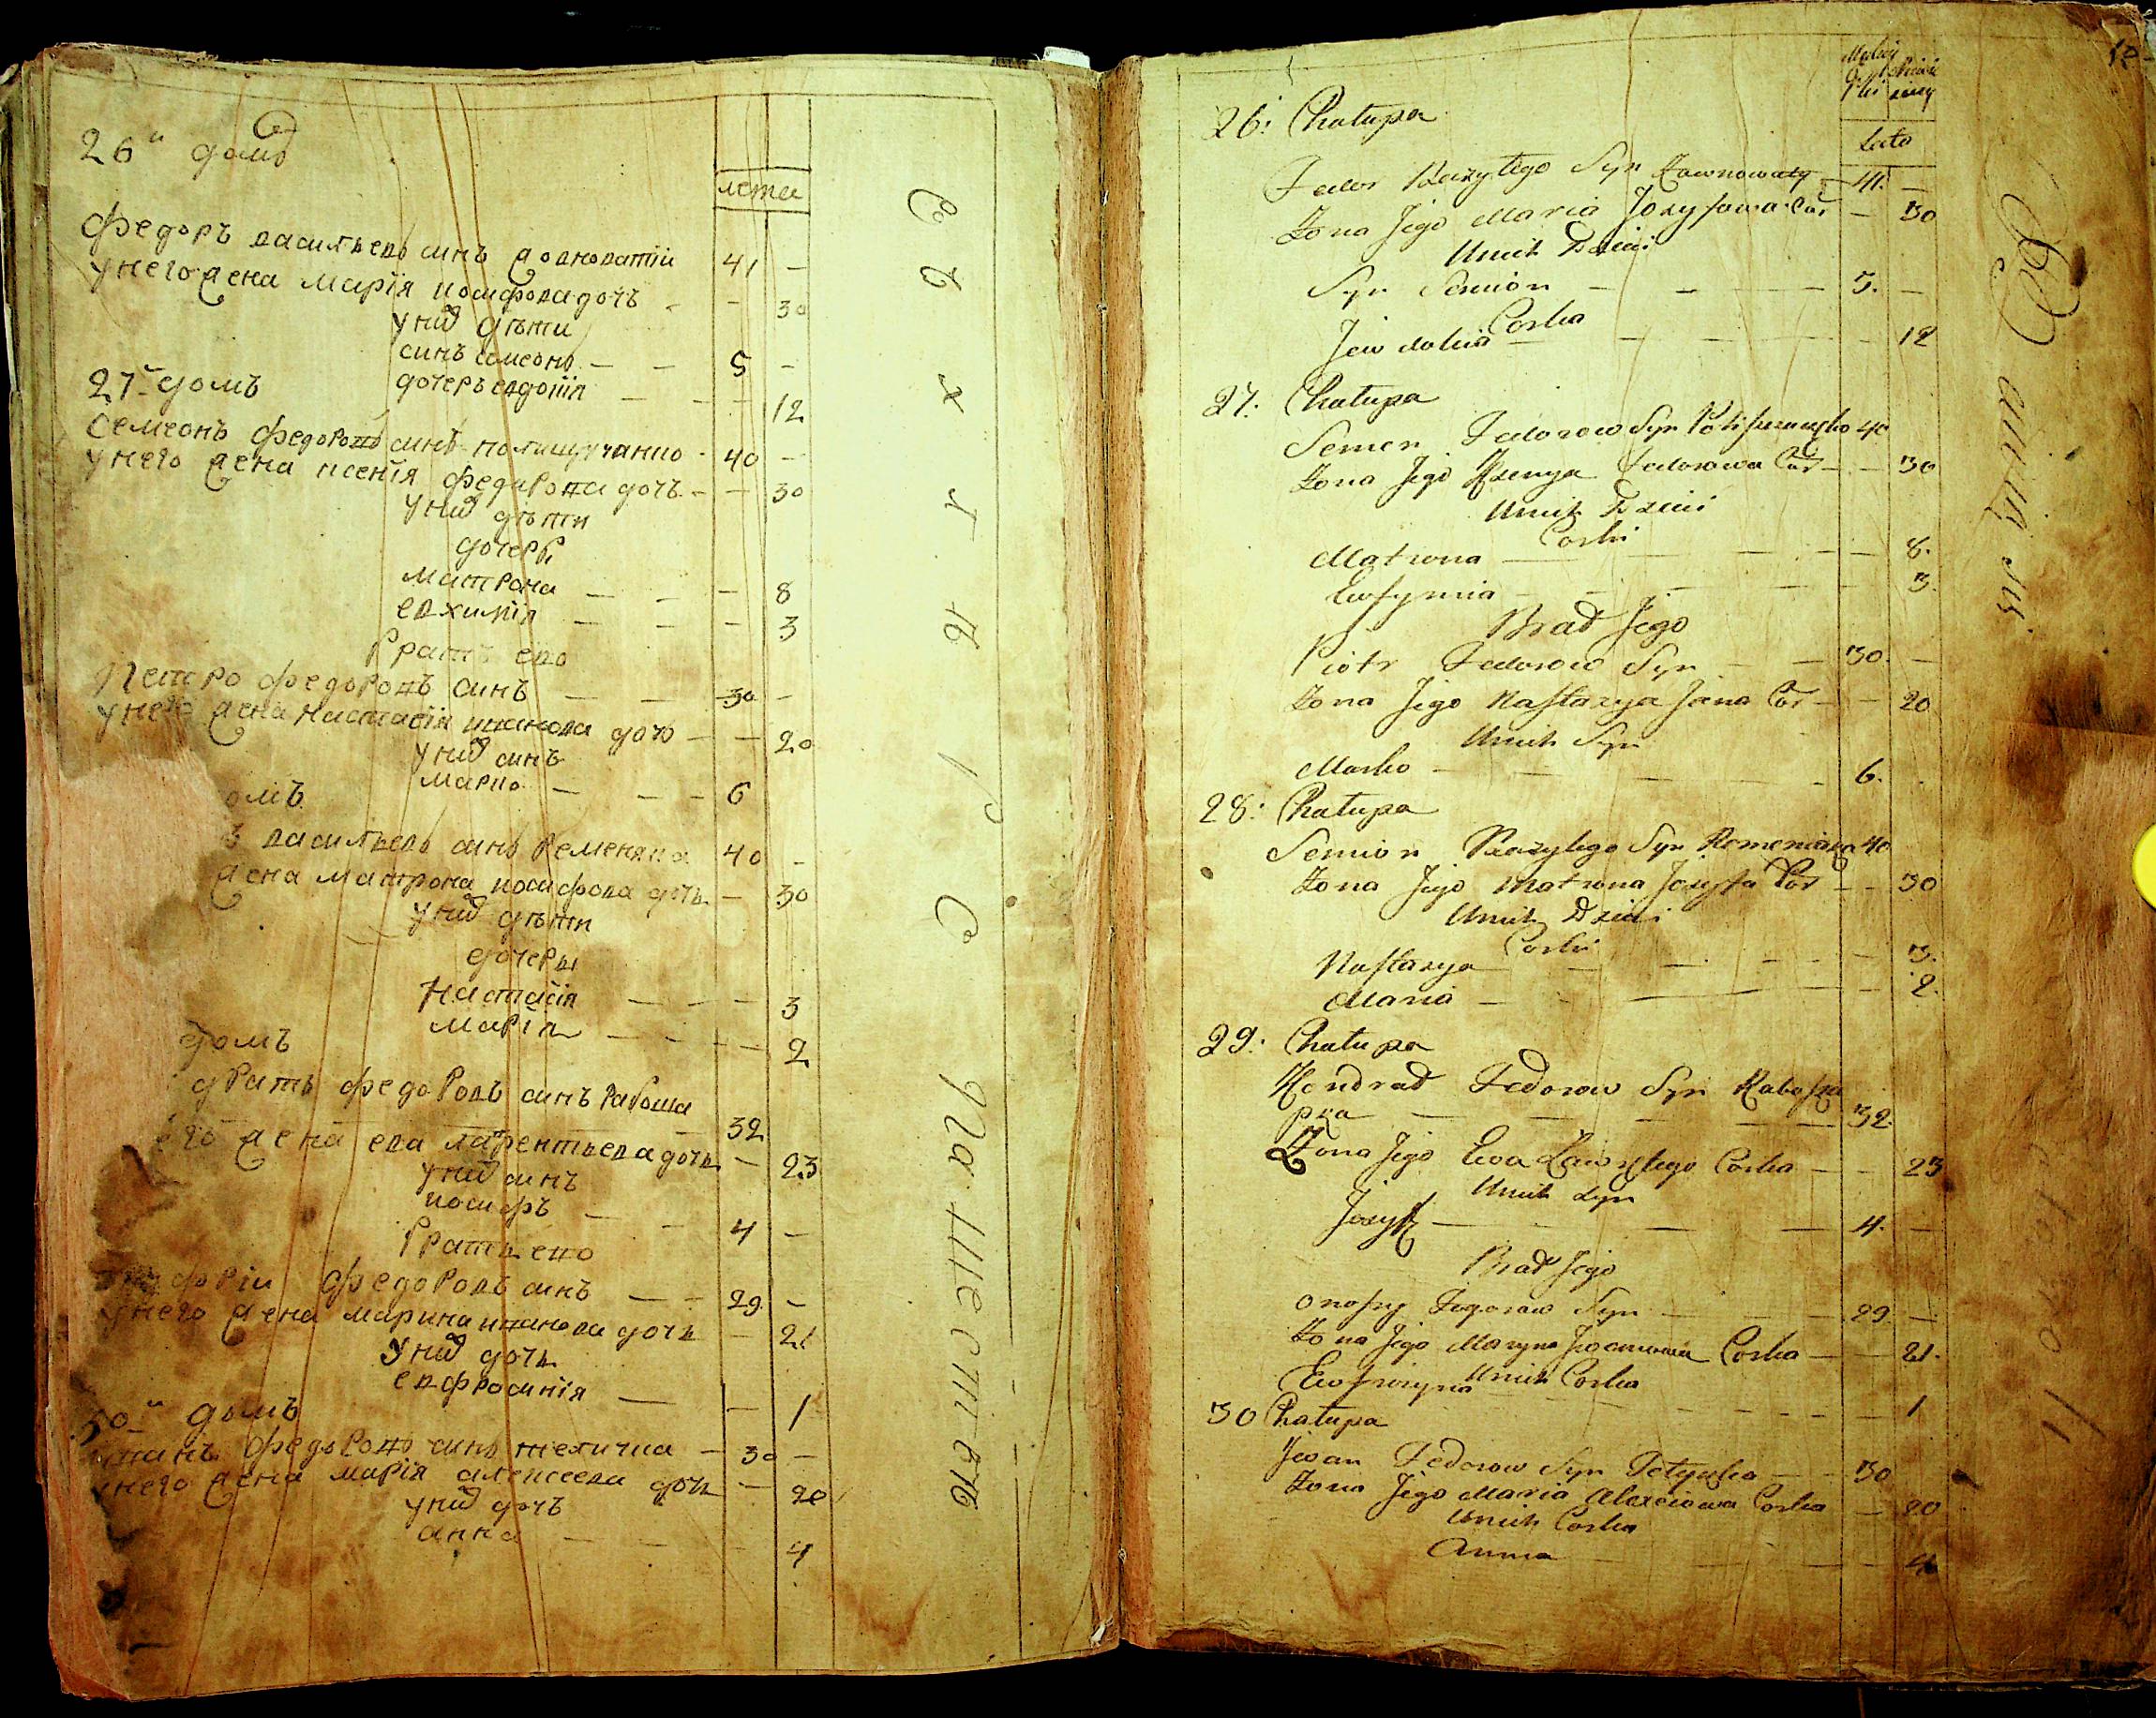 26й домъ
лета
Федоръ васильевъ синъ ровноватїи 41 -
у него жена марїя иосифова дочъ - - 30
у них дѣти
синъ семеонъ - - 5 -
дочеръ евдокїя - - - 12
27й домъ
Семеонъ федоровъ синъ полищучанко - 40 -
у него жена ксенїя федорова дочъ - - 30
у них дѣти
дочеры
матрона - - - 8
евхимїя - - - 3
братъ его
Петро федоровъ синъ - - 30 -
у него жена настасїя иванова дочъ - - 20
у них синъ
марко - - - 6
омъ
васильевъ синъ ременяка 40 -
жена матрона иосифова дочъ - 30
у них дѣти
дочеры
настасїя - - - 3
марїя - - - - 2
домъ
дратъ федоровъ синъ рабоша
- 32
его жена ева лаврентьева дочь - 23
у них синъ
иосифъ - - 4 -
братъ его
фрїи федоровъ синъ - - 29 -
у него жена марина иванова дочь - 21
у них дочь
евфросинїя - - 1
30й домъ
иванъ федоровъ синъ теличка - 30 -
у него жена марїя алексеева дочь - 20
у них дочъ
анна - - - 4
12
26: Chałupa
Lata
Fedor Bazylego Syn Rownowaty - 41. -
Żona Jego Maria Jozyfowa Cór - 30
U nich Dzieci
Syn Semion - - - 5. -
Corka
Jewdokia - - - - 12
27: Chałupa
Semen Fedorow Syn 40
Żona Jego Xsenya Fedorowa Cór - - 30
U nich Dzieci
Corki
Matrona - - - - 8.
Eufymia - - - - 3.
Brad Jego
Piotr Fedorow Syn - - 30. -
Żona Jego Nastazya Jana Cór - - 20
U nich Syn
Marko - - - - 6.
28: Chałupa
Semion Bazylego Syn Remeniaka 40
Żona Jego Matrona Jozyfa Cór - - 30
U nich Dzieci
Corki
Nastazya - - - - 3.
Maria - - - - 2.
29: Chałupa
Kondrad Fedorow Syn
- - - - 32.
Żona Jego Ewa Corka - - 23
U nich Syn
Jozyff - - - 4. -
Brad Jego
Onofry Fegorow Syn - - 29. -
Żona Jego Maryna Corka - - 21.
U nich Corka
Eufrozyna - - - - 1
30 Chałupa
Jwan Fedorow Syn Tełyczka - - 30
Żona Jego Maria Alexeiowa Corka - 20
U nich Corka
Anna - - - 4